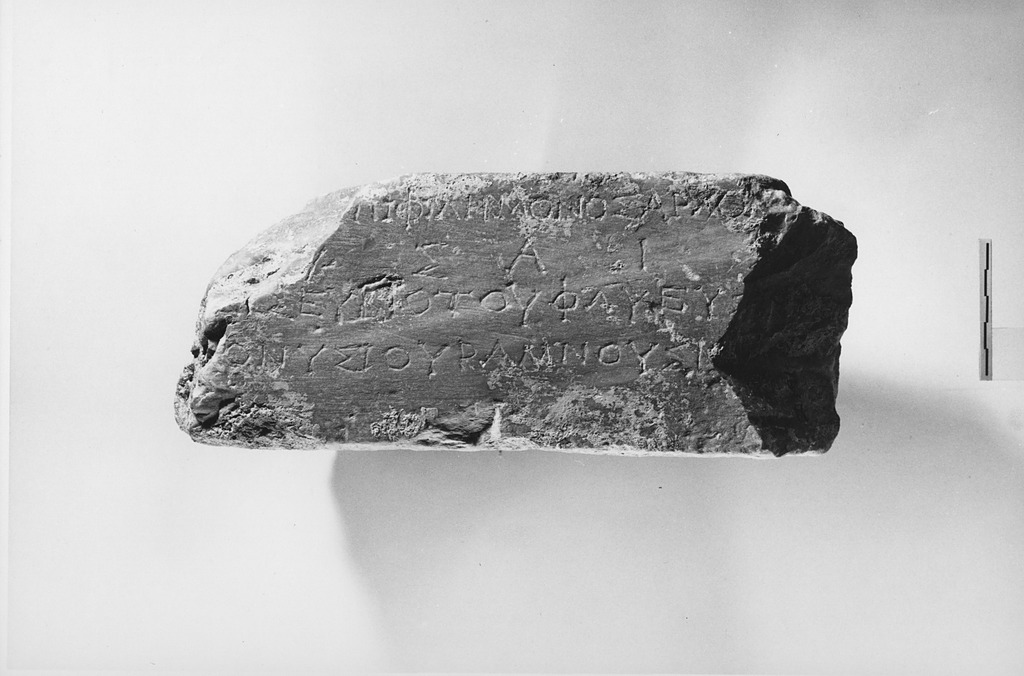 ΠΙΦΙΛΗΜΟΝΟΣΑΡΧΟ
Σ Α Ι
ΣΕΥΒΙΟΤΟΥΦΛΥΕΥ
ΟΝΥΣΙΟΥΡΑΜΝΟΥΣΙ